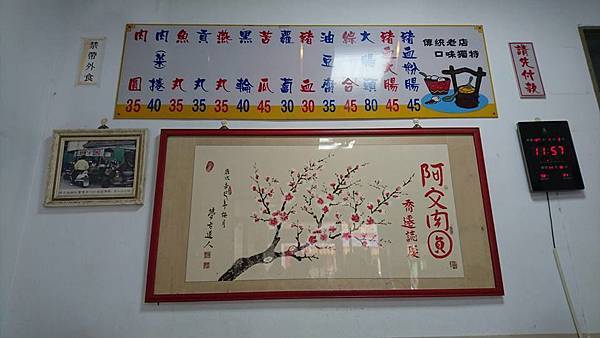 禁帶外食
傳統老店
口味獨特
豬血粉腸 45
豬血大腸 45
大腸頭 80
綜合 45
油豆腐 35
豬血 30
蘿蔔 30
苦瓜 45
黑輪 40
燕丸 35
貢丸 35
魚丸 35
肉捲 40
肉圓 35
請先付款
11:57
阿文肉圓
喬遷誌慶